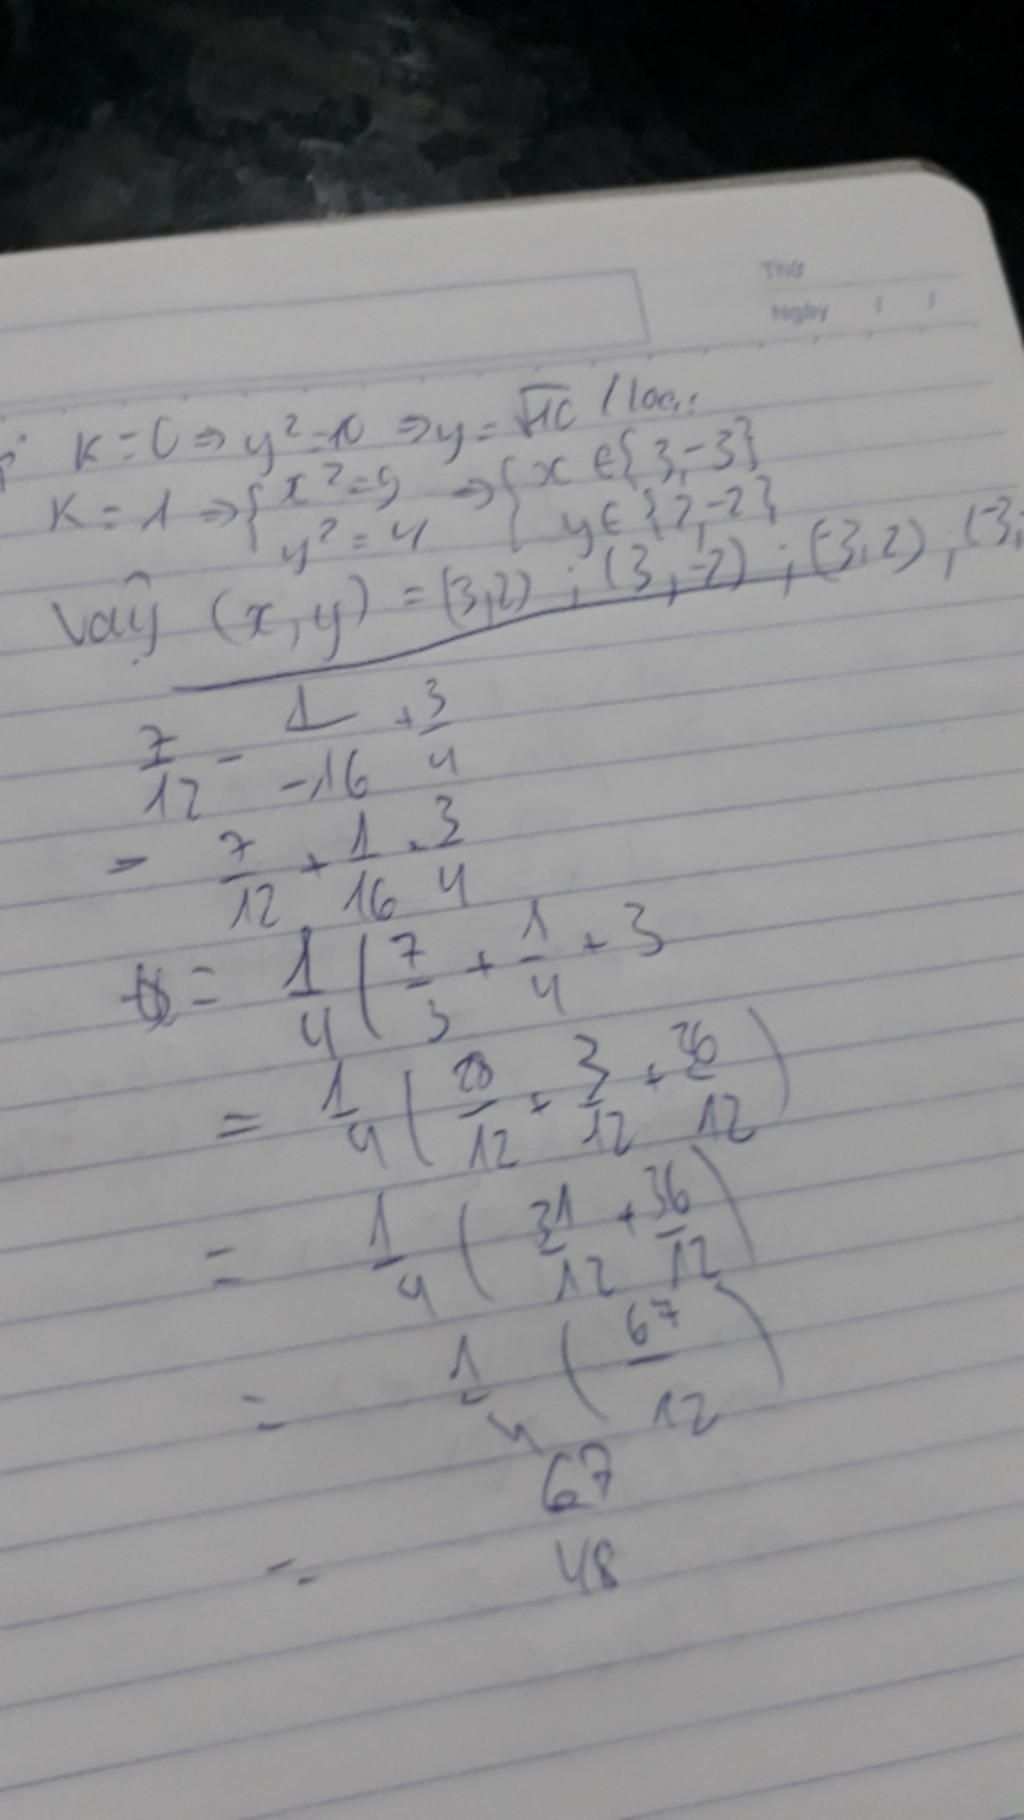 Thứ
Ngày
K = 0 ⇒ y² = 10 ⇒ y = √10 / loại
K = 1 ⇒ { x² = 9 ⇒ { x ∈ {3, -3}
y² = 4 y ∈ {2, -2}
Vậy (x, y) = (3,2) ; (3, -2) ; (-3, 2) ; (-3,
7/12 - 1/-16 + 3/4
= 7/12 + 1/16 + 3/4
= 1/4 ( 7/3 + 1/4 + 3
= 1/4 ( 28/12 + 3/12 + 36/12 )
= 1/4 ( 31/12 + 36/12 )
= 1/4 ( 67/12 )
= 67/48